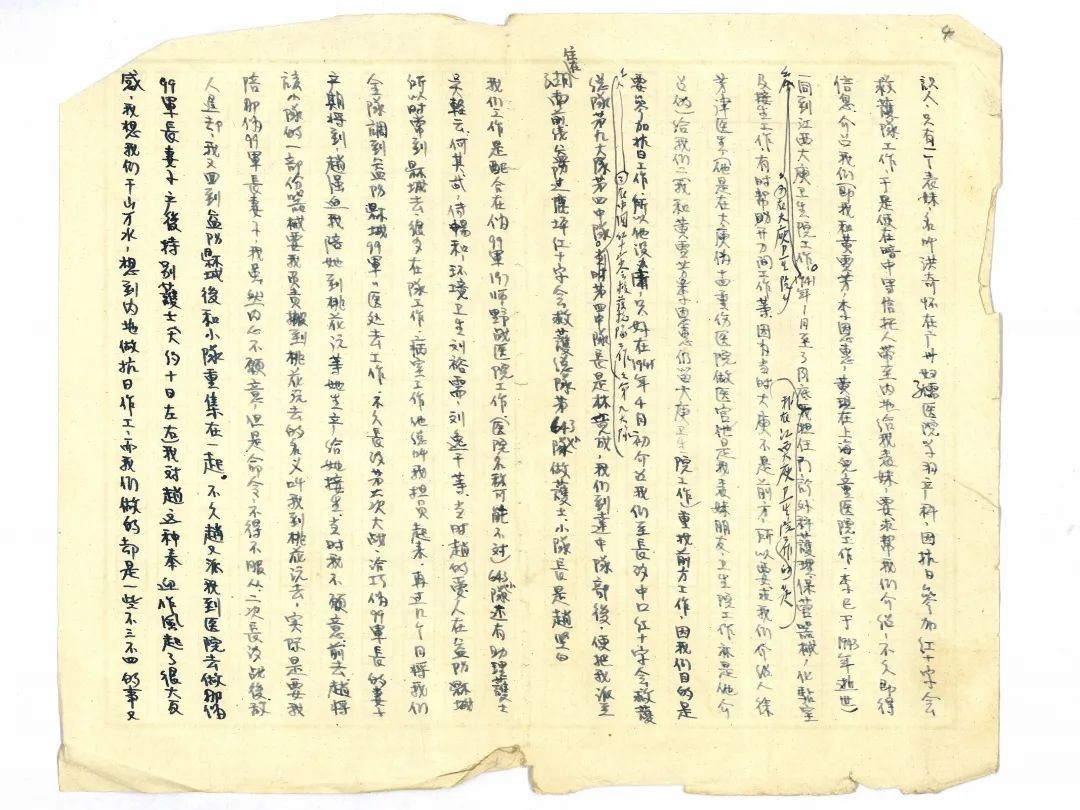 4
認人，只有一个表妹名叫洪奇怀在广州妇孺医院学习产科，因抗日参加红十字会
救护隊工作，于是便在暗中写信托人带至内地给我表妹，要求帮我们介绍，不久即得
信息介召我们(即我和黄雪芳，李因惠，黄現在上海兒童医院工作，李已于1943年逝世)
一同到江西大庾卫生院工作。1941年1月至3月底我担任门診外科護理，保管器械，化驗室
①在大庾卫生院
我在江西大庾卫生院工作的
及接生工作，有时帮助开刀间工作等，因有当时大庾不是前方，所以要求我们介绍人徐
芳津医生(他是在大庾伪十四重伤医院做医官，他是我表妹朋友，卫生院工作亦是他介
召的)给我们二我和黄雪芳李因惠仍留大庾卫生院工作重找前方工作，因我们目的是
要参加抗日工作，所以他没法，只好在1941年4月初介召我们至長沙中口红十字会救護
②在中国红十字会救護總隊工作 第九大隊
总隊第九大隊第四中隊。当时第四中隊長是林 成，我们到達中隊部後，便把我派至
湖南前线益陽 鹿坪红十字会救護总隊第643隊做護士，小隊長是趙 白
我们工作是配合在伪99軍197師野战医院工作(医院名称可能不对)643隊还有助理護士
吳輕云、何其武、侍暢和，环境卫生刘裕需、刘逸千等，当时趙的爱人在益陽縣城
所以时常到縣城去，很少在隊工作，病室工作他总叫我担负起来，再过几个月将我们
全隊調到益陽縣城99軍"医处去工作，不久長沙第二次大战，恰巧伪99軍長的妻子
产期将到，趙强迫我陪她到桃花沅等她生产给她接生，当时我不願意前去，趙将
該小隊的一部份器械要我负责搬到桃花沅去的名义叫我到桃花沅去，实际是要我
陪那伪99軍長妻子，我虽然内心不願意，但是命令，不得不服从。二次長沙战後敌
人退却，我又回到益陽縣城後和小隊重集在一起。不久趙又派我到医院去做那伪
99軍長妻子产後特别護士(大约十日左右)我对趙这种奉迎作風起了很大反
感，我想我们千山万水，想到内地做抗日作工，而我们做的却是一些不三不四的事又